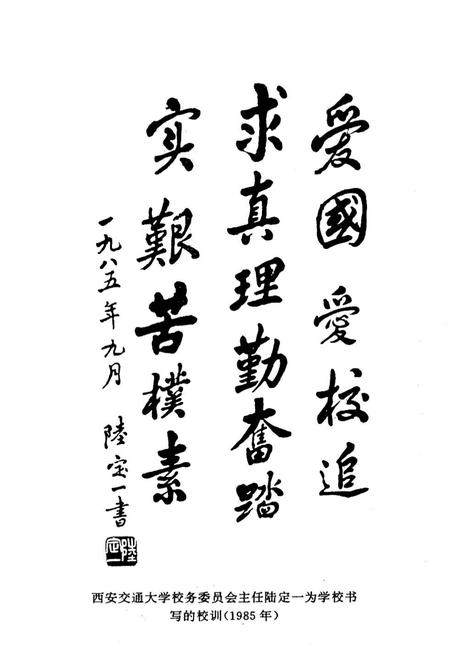 爱國愛校追
求真理勤奮踏
实艱苦樸素
一九八五年九月
陸定一書
陸定一
西安交通大学校务委员会主任陆定一为学校书
写的校训(1985年)